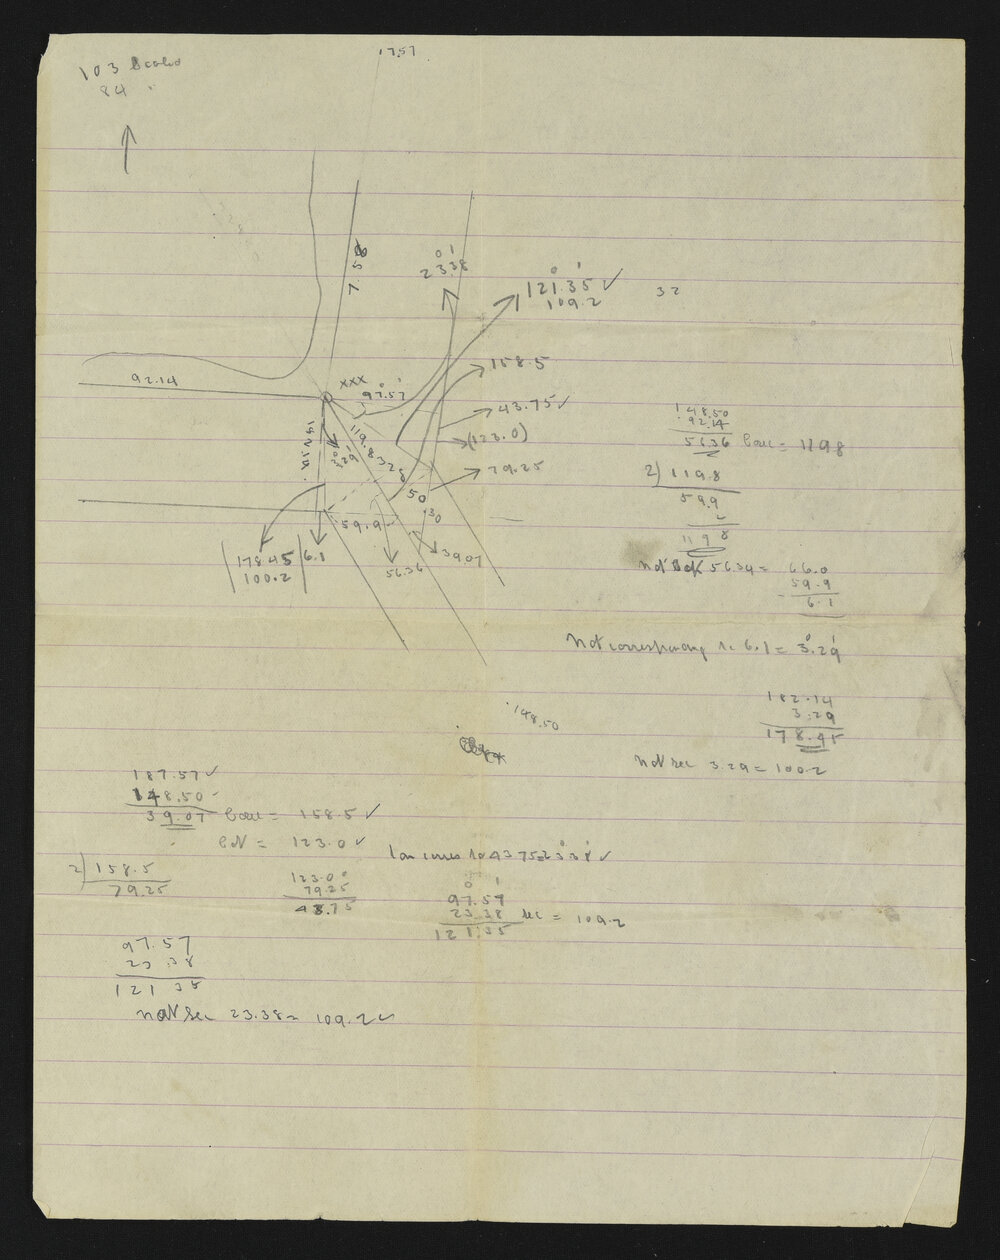 103
84
7.57
7.58
23.38
0 1
121.35 ✓
109.2
32
158.5
92.14
xxx
97.57
43.75 ✓
(123.0)
119.8
328
3.29
79.25
50
.30
59.9
178.45
100.2
6.1
56.36
39.07
148.50
92.14
56.36 = 119.8
2) 119.8
59.9
2
119.8
56.34 = 66.0
59.9
6.1
Not corresponding to 6.1 = 3.29
182.14
3.29
178.45
Not sec 3.29 = 100.2
148.50
187.57 ✓
148.50
39.07 = 158.5 ✓
= 123.0 ✓
2) 158.5
79.25
123.00
79.25
43.75
to 43.75 = 23.38 ✓
0 1
97.57
23.38 sec = 109.2
121.35
97.57
23 38
121 35
nat sec 23.38 = 109.2 ✓